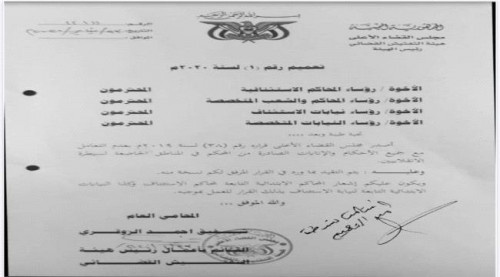 بسم الله الرحمن الرحيم
الجمهورية اليمنية
مجلس القضاء الأعلى
هيئة التفتيش القضائي
رئيس الهيئة
الموافق
تعميم رقم (1) لسنة 2020م
الأخوة / رؤساء المحاكم الاستئنافية المحترمون
الأخوة / رؤساء المحاكم والشعب المتخصصة المحترمون
الأخوة / رؤساء نيابات الاستئناف المحترمون
الأخوة / رؤساء النيابات المتخصصة المحترمون
تحية طيبة وبعد ....
أصدر مجلس القضاء الأعلى قراره رقم (38) لسنة 2019م بعدم التعامل
مع جميع الأحكام والإنابات الصادرة من المحاكم في المناطق الخاضعة لسيطرة
الانقلابيين.
وعليه : يتم التقيد بما ورد في القرار المرفق لكم نسخة منه.
ويكون عليكم إشعار المحاكم الابتدائية التابعة لمحاكم الاستئناف وكذا النيابات
الابتدائية التابعة لنيابة الاستئناف بذلك القرار للعمل بموجبه.
والله الموفق ...
المحامي العام
شفيق احمد الزوقري
القائم بأعمال رئيس هيئة
التفتيش القضائي